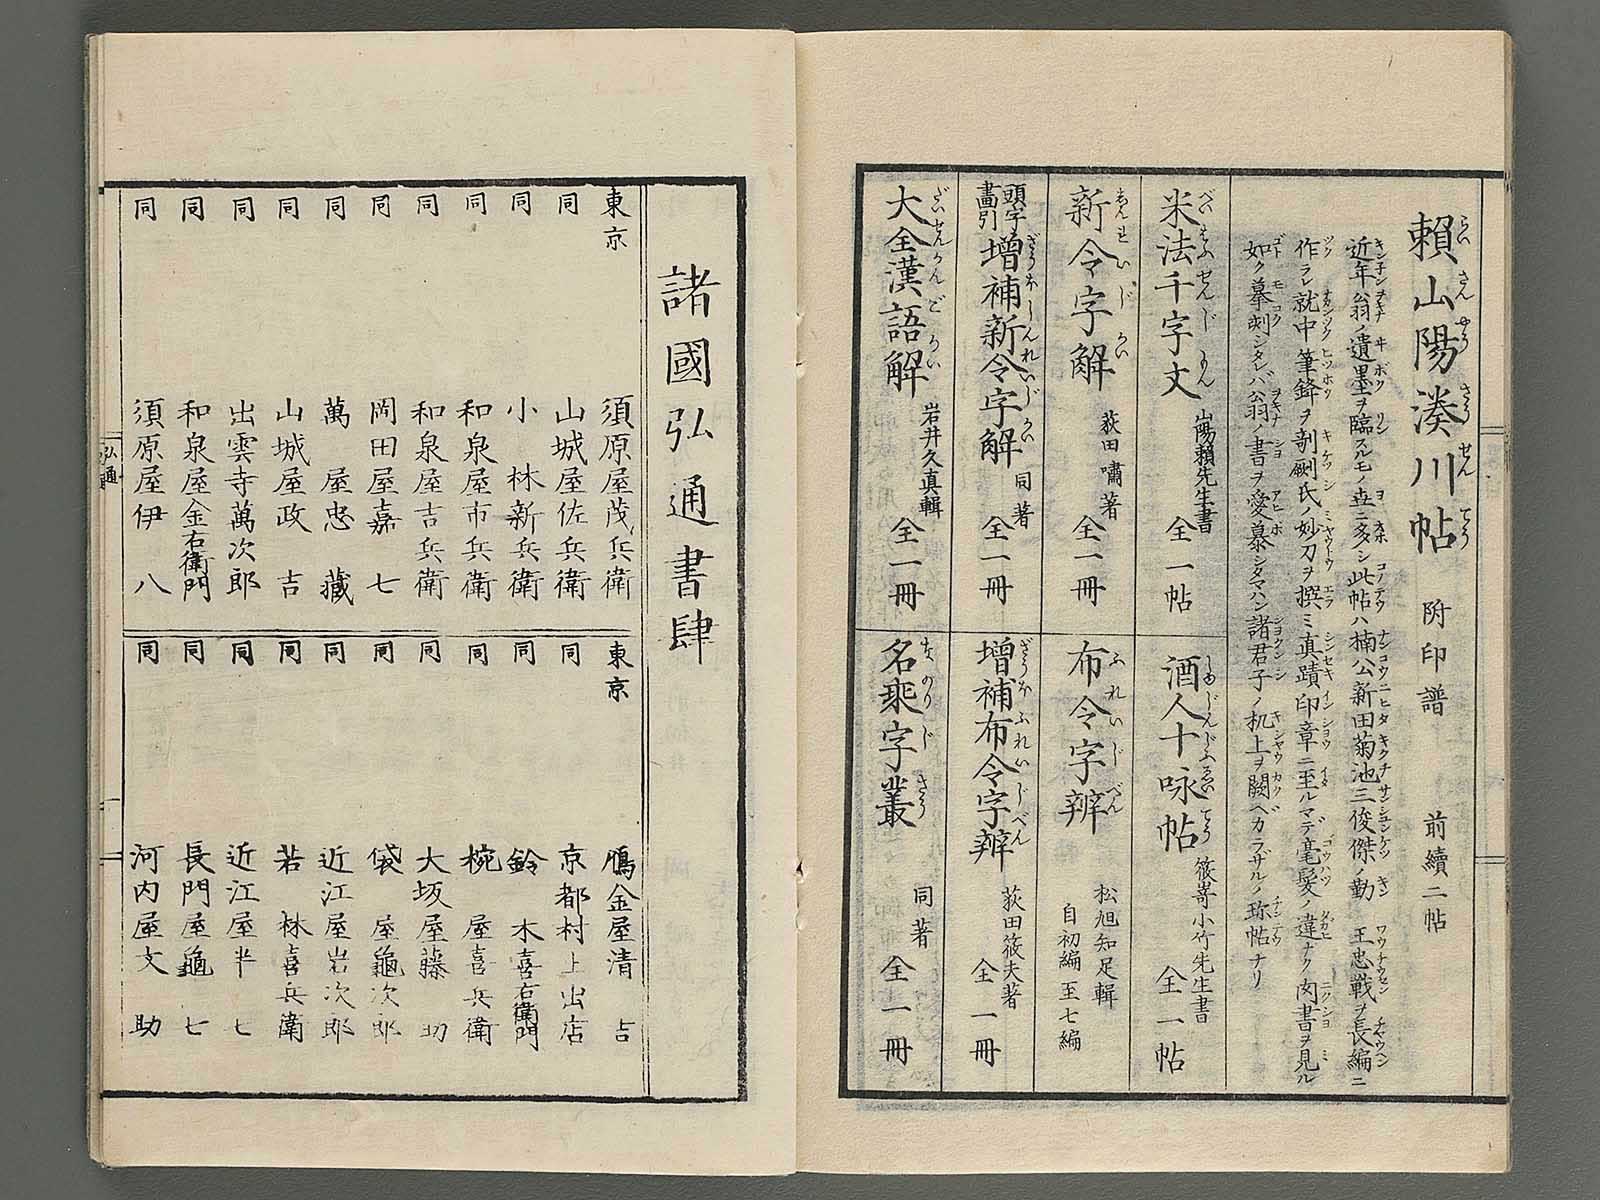 賴山陽湊川帖 附印譜 前續二帖
近年翁ノ遺墨ヲ臨スルモノ世ニ多シ此帖ハ楠公新田菊池三俊傑ノ勤 王忠戦ヲ長編ニ
作ラレ就中筆鋒ヲ剞劂氏ノ妙刀ヲ撰ミ真蹟印章ニ至ルマデ毫髪ノ違ナク肉書ヲ見ル
如ク摹刻シタレバ翁ノ書ヲ愛慕シタマハン諸君子ノ机上ヲ闕ベカラザルノ珎帖ナリ
米法千字文 山陽賴先生書 全一帖
酒人十咏帖 篠嵜小竹先生書 全一帖
新令字解 荻田嘯著 全一冊
布令字辨 松旭知足輯 自初編至七編
頭字畫引 増補新令字解 同著 全一冊
増補布令字辨 荻田筱夫著 全一冊
大全漢語解 岩井久真輯 全一冊
名乗字叢 同著 全一冊
諸國弘通書肆
東京 須原屋茂兵衛
同 山城屋佐兵衛
同 小林新兵衛
同 和泉屋市兵衛
同 和泉屋吉兵衛
同 岡田屋嘉七
同 萬屋忠藏
同 山城屋政吉
同 出雲寺萬次郎
同 和泉屋金右衛門
同 須原屋伊八
東京 鴈金屋清吉
同 京都村上出店
同 鈴木喜右衛門
同 椀屋喜兵衛
同 大坂屋藤助
同 袋屋龜次郎
同 近江屋岩次郎
同 若林喜兵衛
同 近江屋半七
同 長門屋龜七
同 河内屋文助
弘通